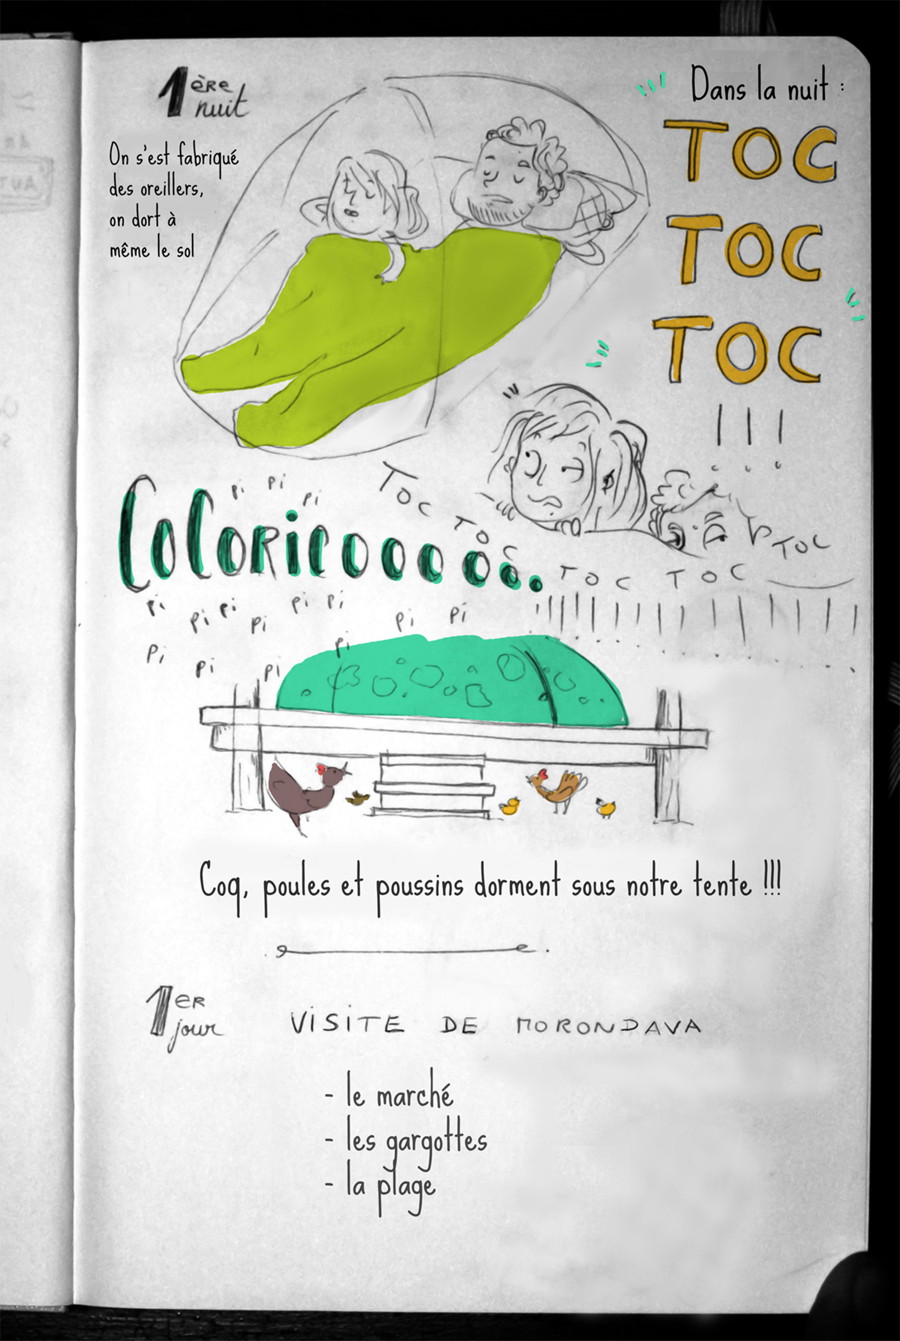 1ère
nuit
On s'est fabriqué
des oreillers,
on dort à
même le sol
Dans la nuit :
TOC
TOC
TOC
!!!
TOC TOC
TOC
TOC TOC
!!!!!!!!!!!!!!!!
pi pi pi
COCORICOOOOOO..
pi pi pi pi pi pi
pi pi
pi pi pi pi
Coq, poules et poussins dorment sous notre tente !!!
1er
jour
VISITE DE MORONDAVA
- le marché
- les gargottes
- la plage